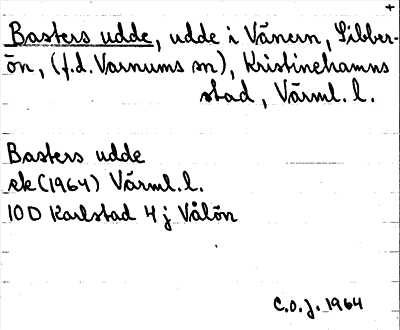 +
Basters udde, udde i Vänern, Sibber-
ön, (f.d. Varnums sn), Kristinehamns
stad, Värml. l.
Basters udde
ek (1964) Värml. l.
10D Karlstad 4 j Vålön
C.O.J. 1964